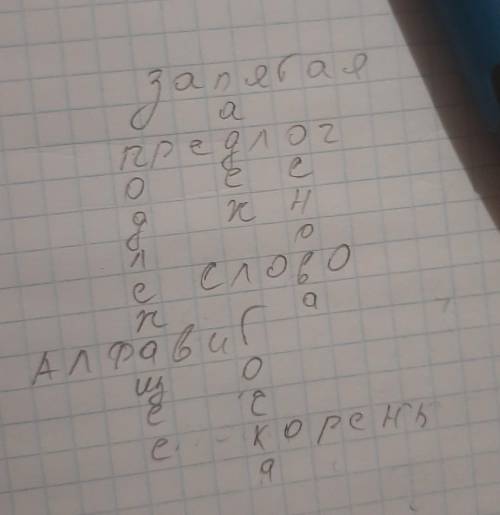 запятая
а
предлог
о е с
д ж н
л о
е слово
ж а
Алфавит
щ о
е ч
е корень
а